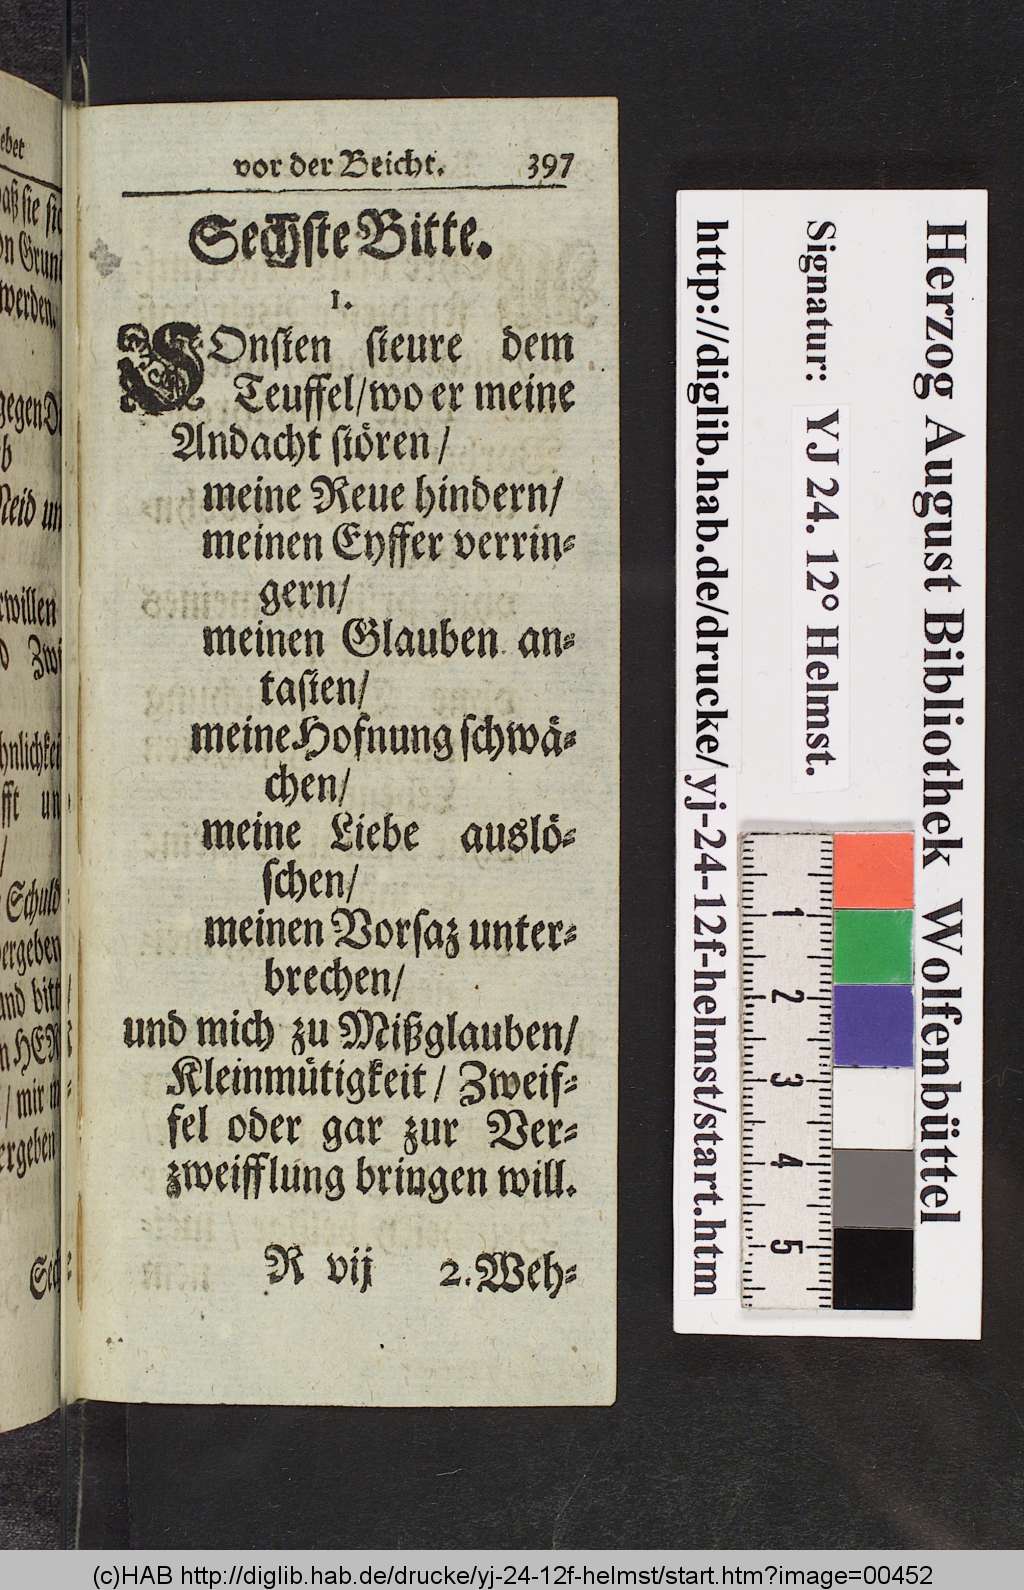 ebet
vor der Beicht. 397
Sechste Bitte.
1.
SOnsten steure dem
Teuffel/wo er meine
Andacht stören/
meine Reue hindern/
meinen Eyffer verrin-
gern/
meinen Glauben an-
tasten/
meine Hofnung schwä-
chen/
meine Liebe auslö-
schen/
meinen Vorsaz unter-
brechen/
und mich zu Mißglauben/
Kleinmütigkeit / Zweif-
fel oder gar zur Ver-
zweifflung bringen will.
R vij 2. Weh-
Herzog August Bibliothek Wolfenbüttel
Signatur: YJ 24. 12° Helmst.
http://diglib.hab.de/drucke/yj-24-12f-helmst/start.htm
1
2
3
4
5
(c)HAB http://diglib.hab.de/drucke/yj-24-12f-helmst/start.htm?image=00452